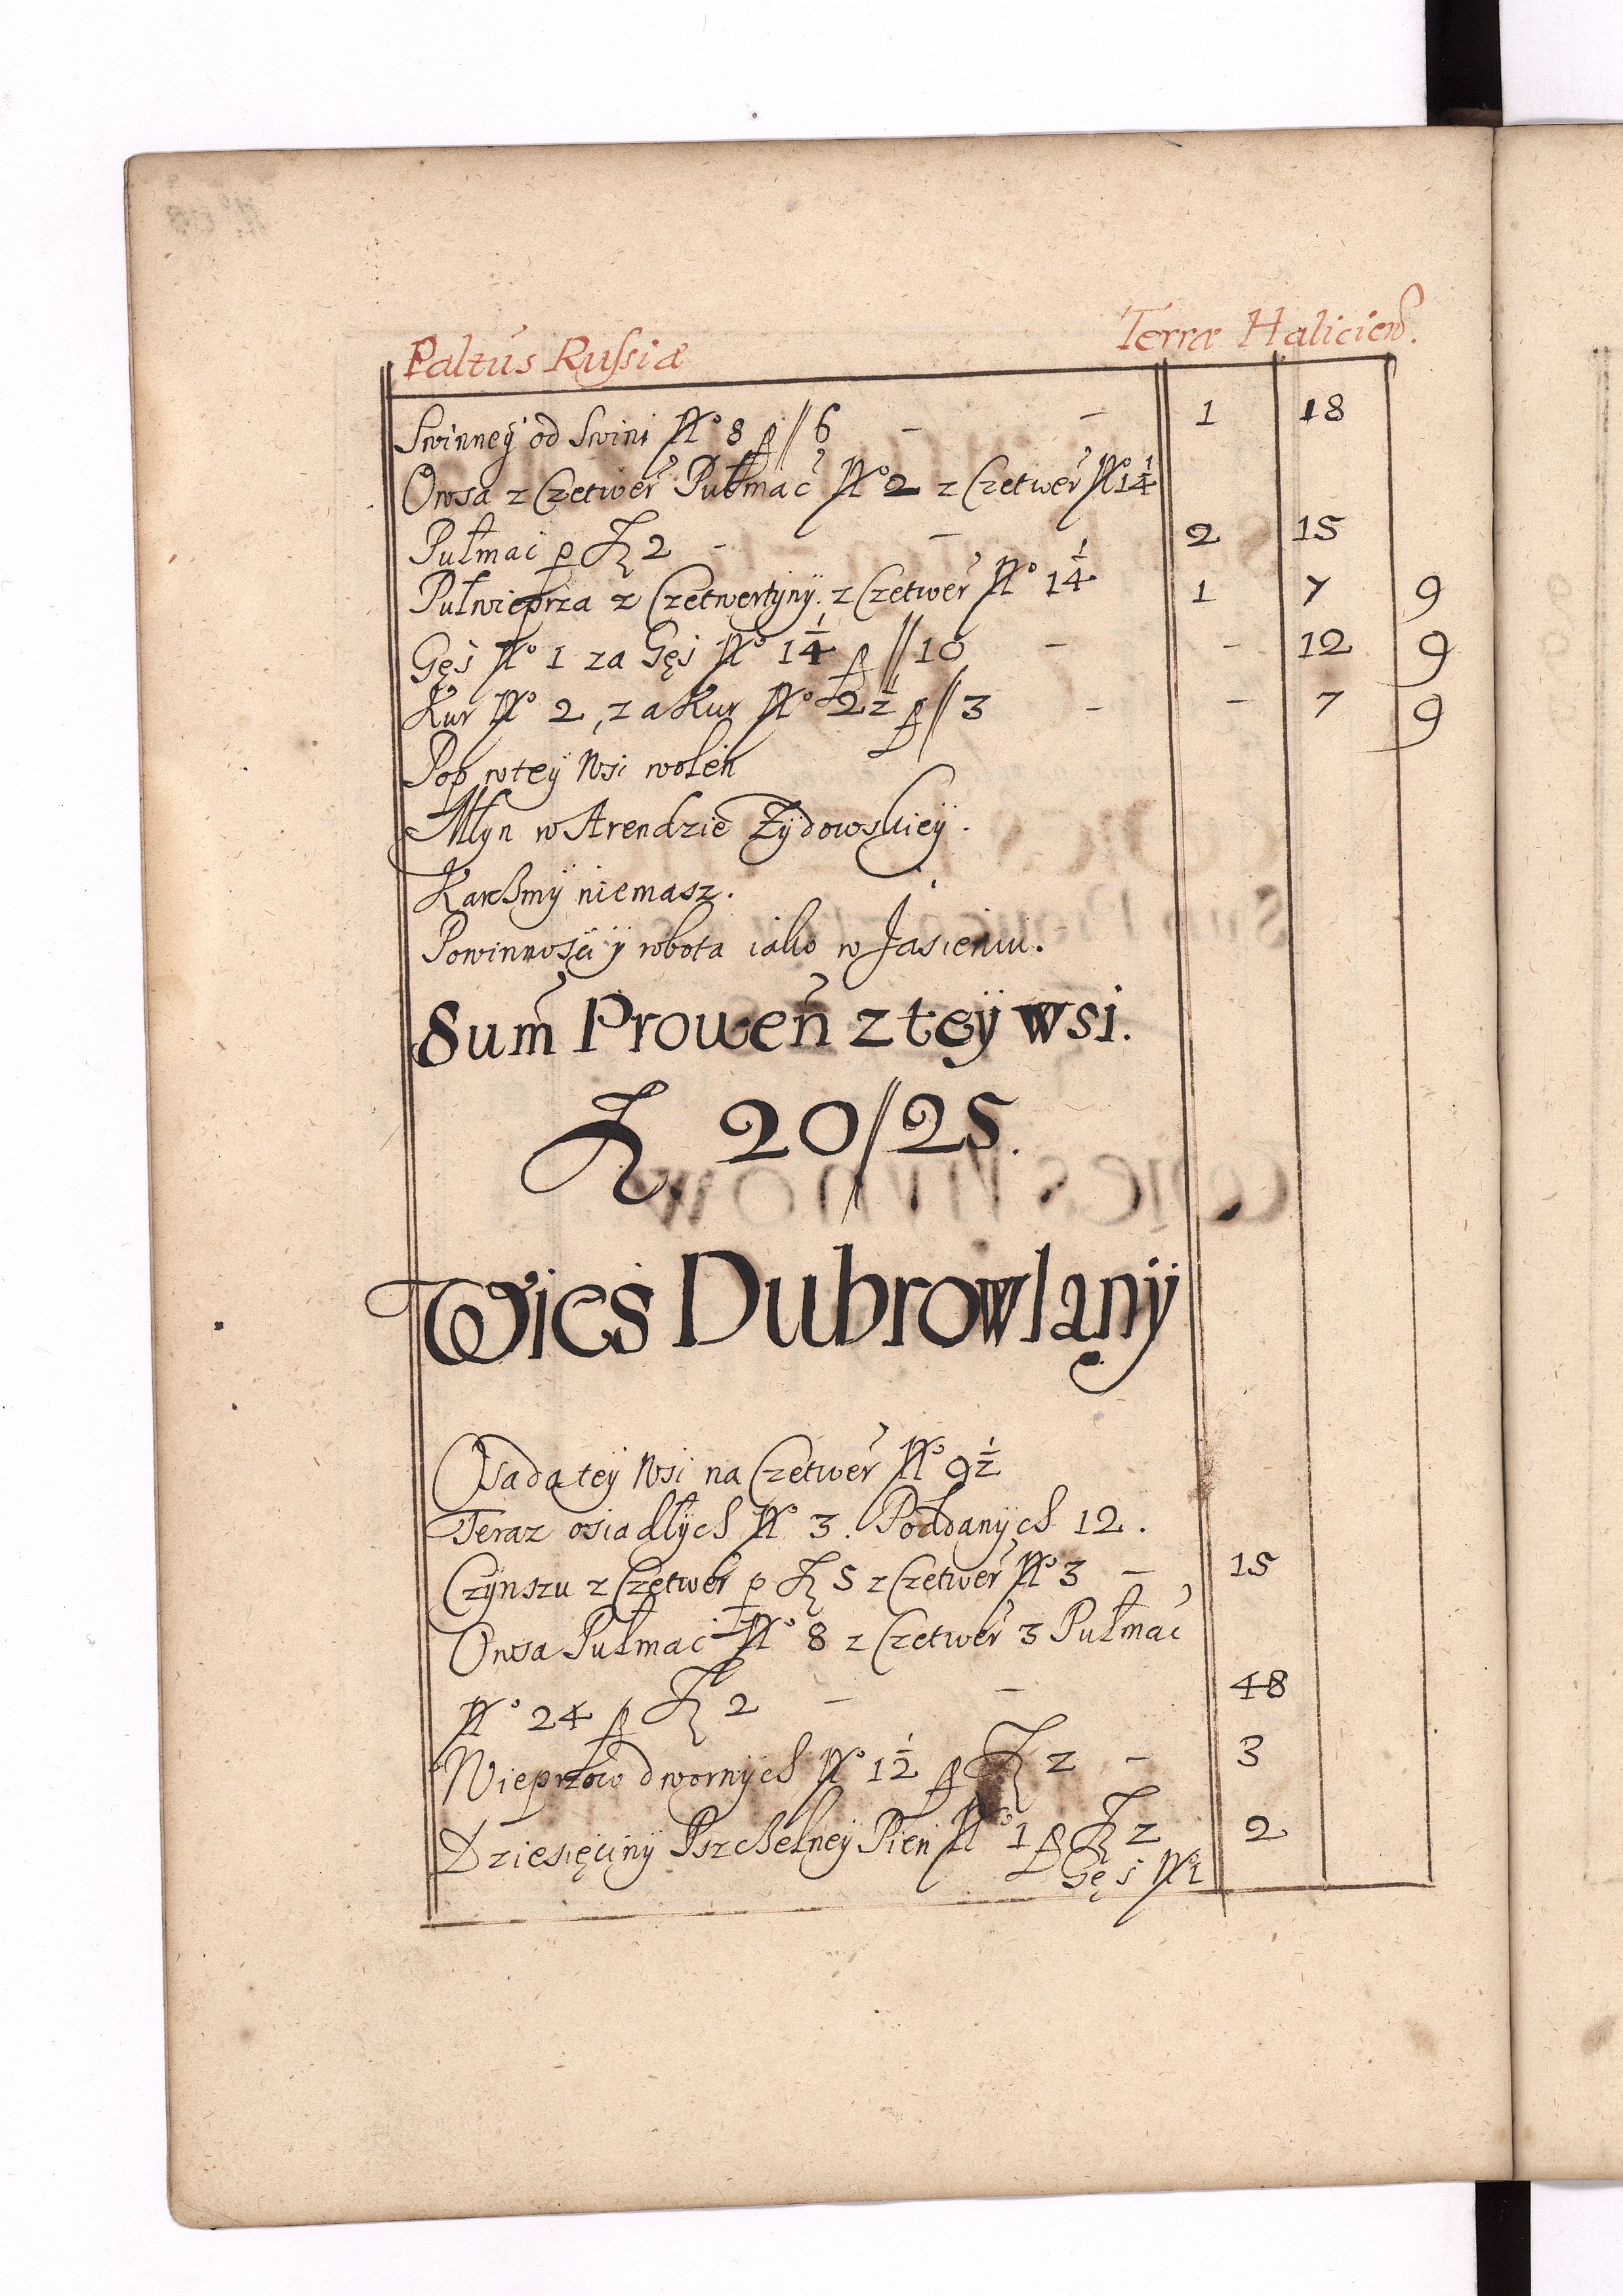 Paltus Russiæ Terræ Haliciens.
Swinney od Swini No 8 p // 6 – – 1 18
Owsa z Czetwer Pułmac No 2 z Czetwer No 1 1/4
Pułmac p Zł 2 – – 2 15
Pułwieprza z Czetwertyny z Czetwer No 1 1/4 1 7 9
Gęś No 1 za Gęś No 1 1/4 p // 10 – – 12 9
Kur No 2, za Kur No 2 1/2 p // 3 – – 7 9
Pop w tey Wsi wolen
Młyn w Arendzie Żydowskiey.
Karczmy niemasz.
Powinnosci y robota iako w Jasieniu.
Sum Prowen z tey wsi.
Zł 20 // 25.
Wies Dubrowlany
Osada tey Wsi na Czetwer No 9 1/2
Teraz osiadłych No 3. Poddanych 12.
Czynszu z Czetwer p Zł 5 z Czetwer No 3 – 15
Owsa Pułmac No 8 z Czetwer 3 Pułmac
No 24 p Zł 2 – – 48
Wieprzow dwornych No 1 1/2 p Zł 2 – 3
Dziesięciny Pszczelney Pień No 1 p Zł 2 2
Gęś No 1